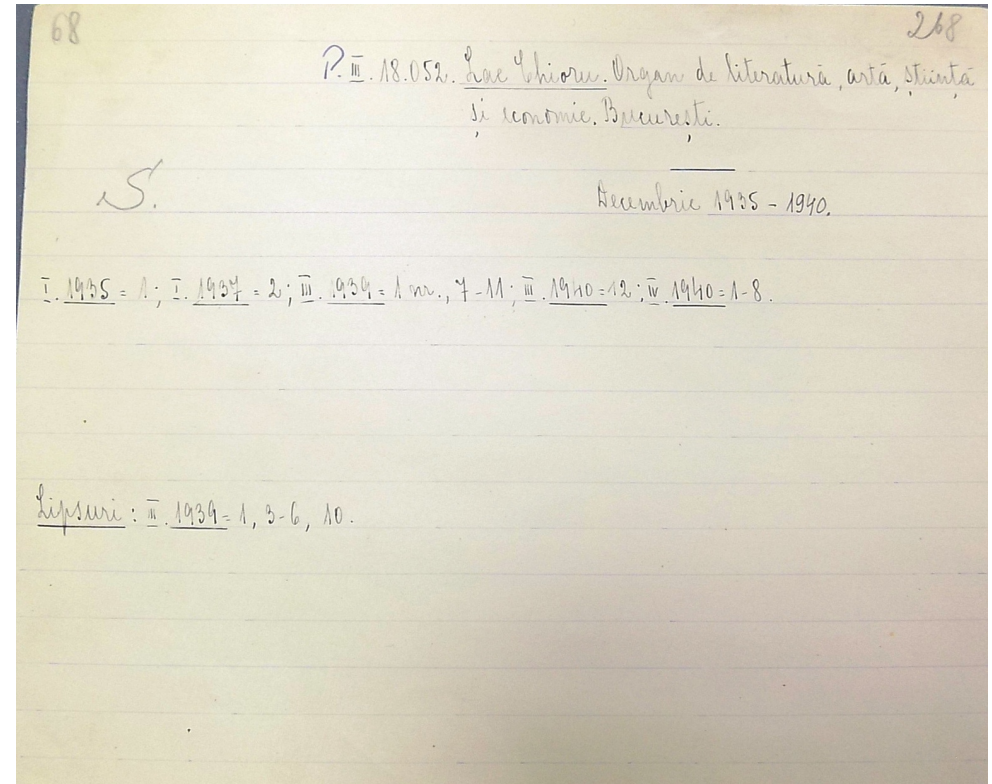 68
268
P. III. 18.052. Lae Chioru. Organ de literatură, artă, știință
și economie. București.
S.
Decembrie 1935 - 1940.
I. 1935 = 1; I. 1937 = 2; III. 1939 = 1 nr., 7-11; III. 1940 = 12; IV. 1940 = 1-8.
Lipsuri: III. 1939 = 1, 3-6, 10.